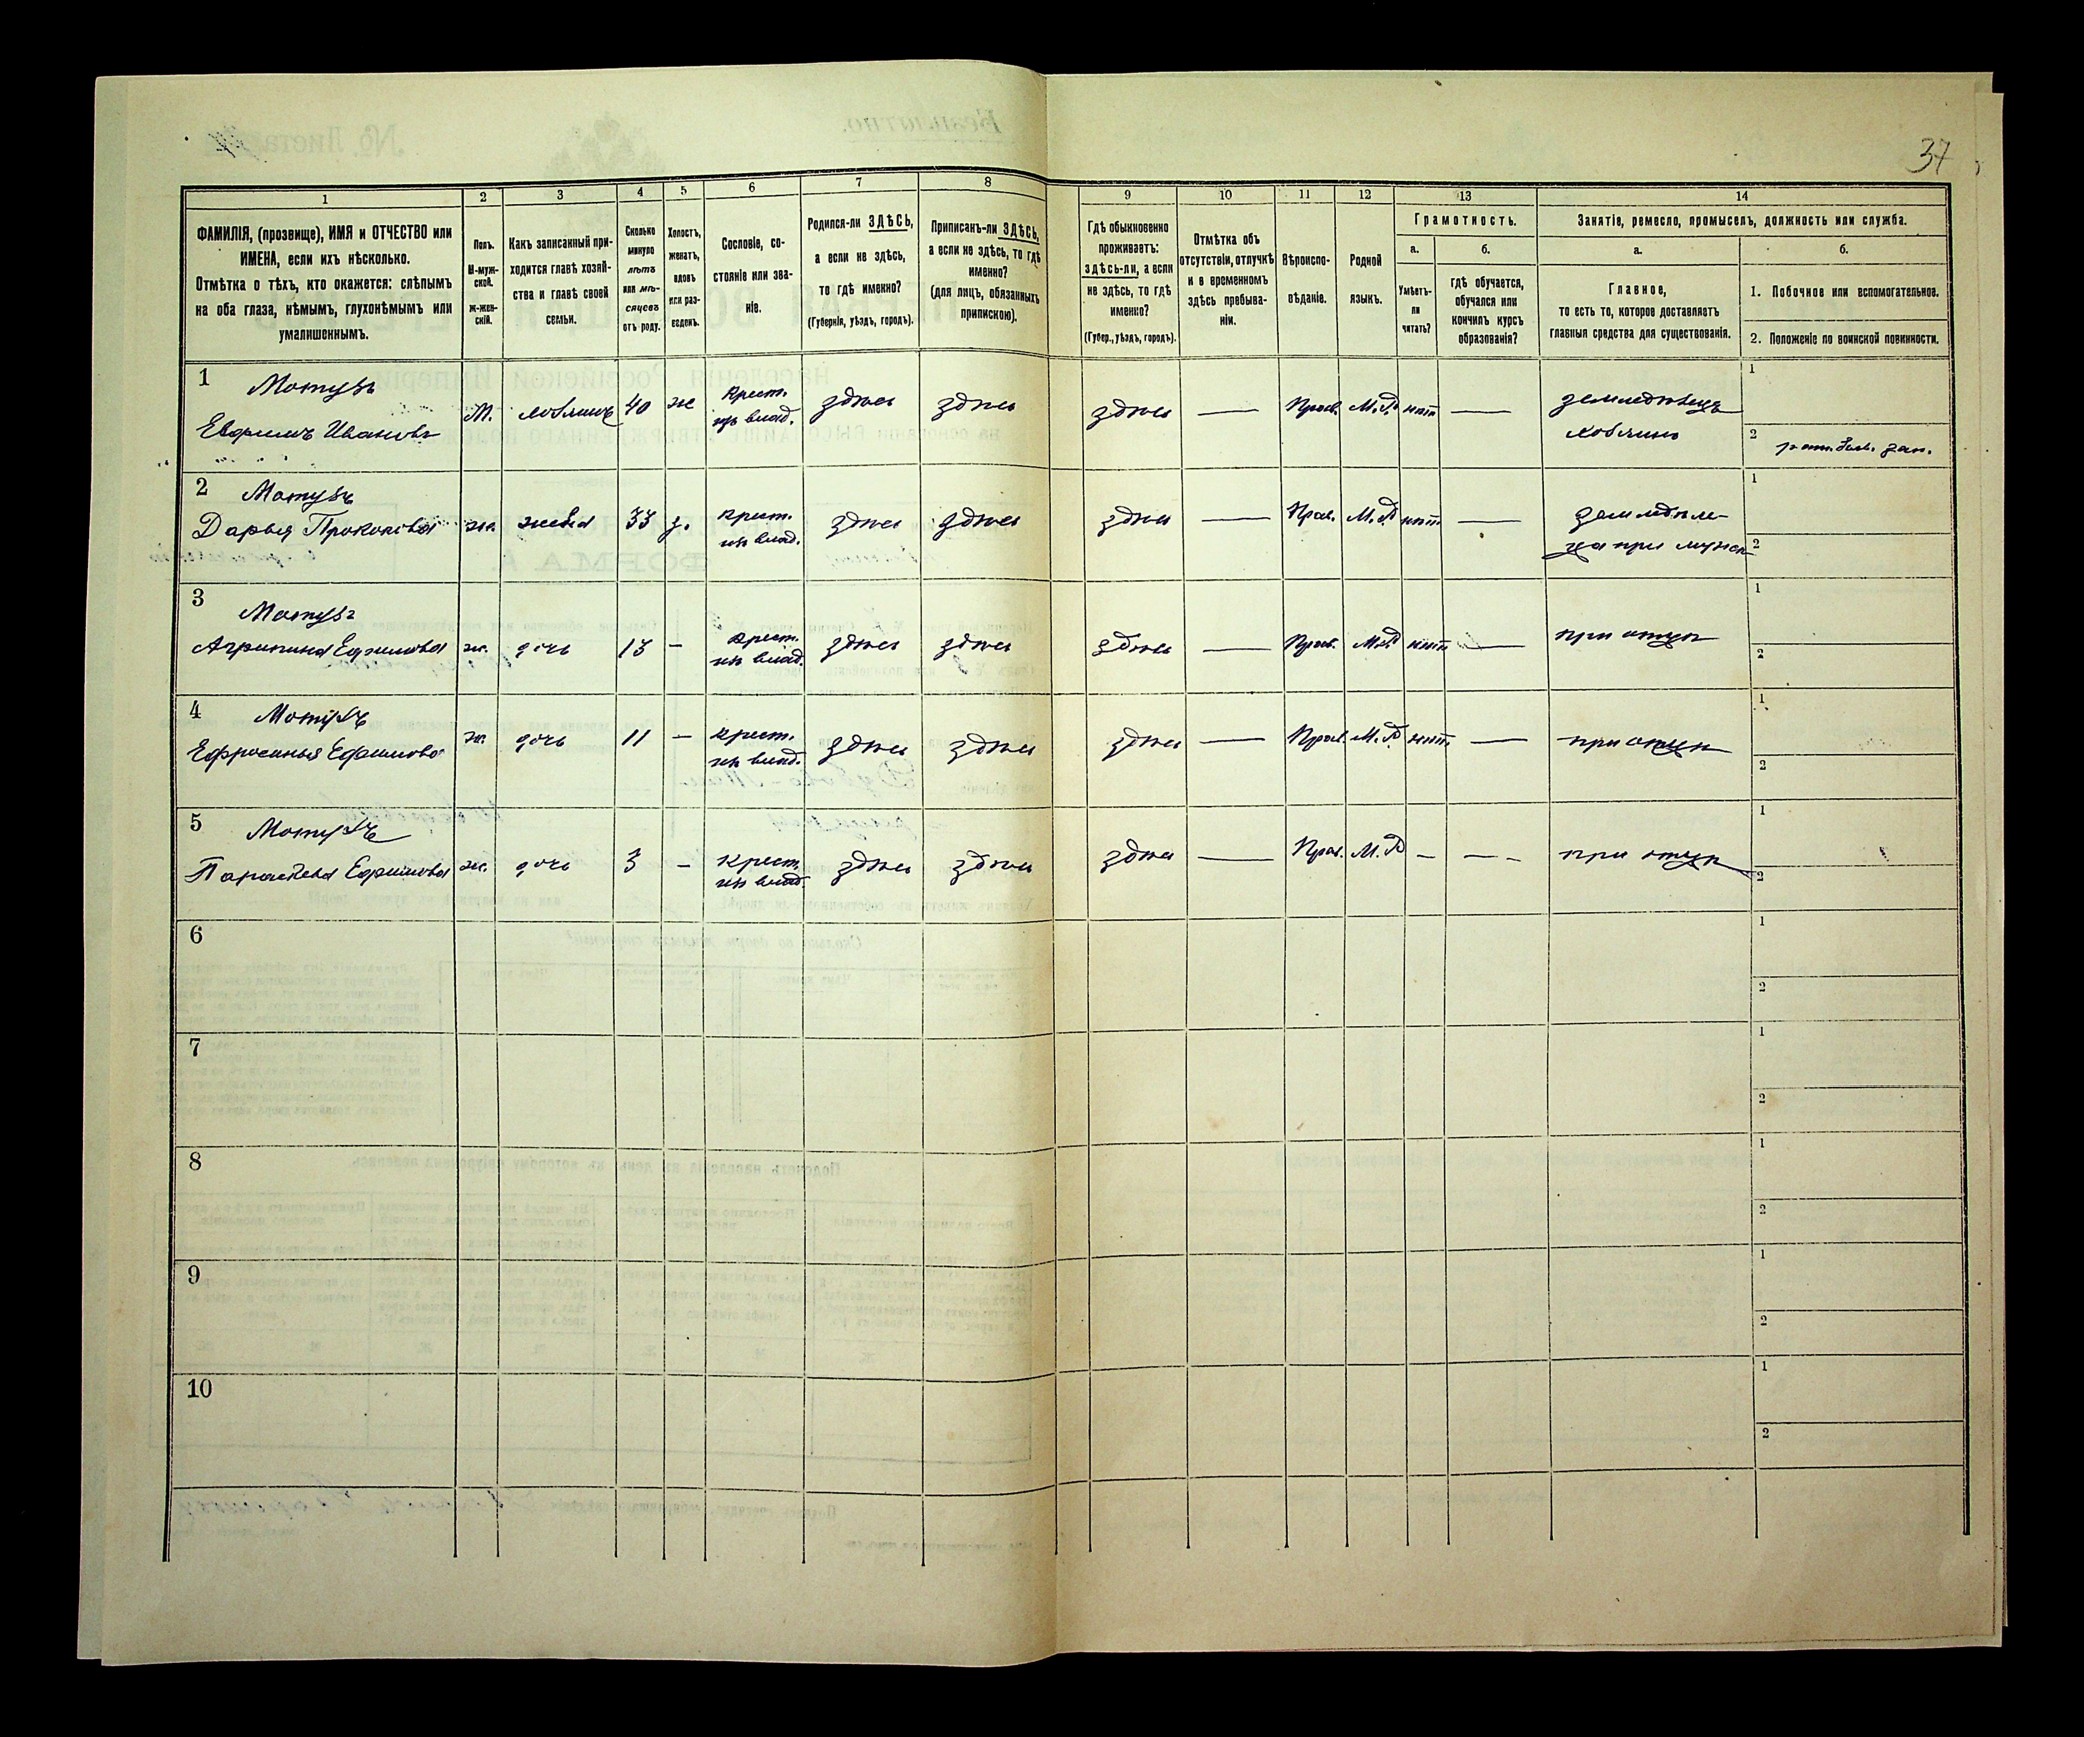 37
1 2 3 4 5 6 7 8 9 10 11 12 13 14
ФАМИЛІЯ, (прозвище), ИМЯ и ОТЧЕСТВО или
ИМЕНА, если ихъ нѣсколько.
Отмѣтка о тѣхъ, кто окажется: слѣпымъ
на оба глаза, нѣмымъ, глухонѣмымъ или
умалишеннымъ.
Полъ.
М-муж-
ской.
Ж-жен-
скій.
Какъ записанный при-
ходится главѣ хозяй-
ства и главѣ своей
семьи.
Сколько
минуло
лѣтъ
или мѣ-
сяцевъ
отъ роду.
Холостъ,
женатъ,
вдовъ
или раз-
веденъ.
Сословіе, со-
стояніе или зва-
ніе.
Родился-ли ЗДѢСЬ,
а если не здѣсь,
то гдѣ именно?
(Губернія, уѣздъ, городъ).
Приписанъ-ли ЗДѢСЬ,
а если не здѣсь, то гдѣ
именно?
(для лицъ, обязанныхъ
припискою).
Гдѣ обыкновенно
проживаетъ:
здѣсь-ли, а если
не здѣсь, то гдѣ
именно?
(Губер., уѣздъ, городъ).
Отмѣтка объ
отсутствіи, отлучкѣ
и о временномъ
здѣсь пребыва-
ніи.
Вѣроиспо-
вѣданіе.
Родной
языкъ.
Грамотность.
а.
Умѣетъ-
ли
читать?
б.
гдѣ обучается,
обучался или
кончилъ курсъ
образованія?
Занятіе, ремесло, промыселъ, должность или служба.
а.
Главное,
то есть то, которое доставляетъ
главныя средства для существованія.
б.
1. Побочное или вспомогательное.
2. Положеніе по воинской повинности.
1 Мотузъ
Ефримъ Ивановъ
М. хозяинъ 40 ж Крест. изъ влад. здѣсь здѣсь здѣсь — Прав. М.Р нѣтъ — земледѣлецъ
хозяинъ
1
2
2 Мотузъ
Дарья Прокопова ж. жена 33 з. крест. изъ влад. здѣсь здѣсь здѣсь — Прав. М.Р нѣтъ — земледѣли-
ца при мужѣ
1
2
3 Мотузъ
Агрипина Ефимова ж. дочь 13 — крест. изъ влад. здѣсь здѣсь здѣсь — Прав. М.Р нѣтъ — при отцѣ
1
2
4 Мотузъ
Ефросинья Ефимова ж. дочь 11 — крест. изъ влад. здѣсь здѣсь здѣсь — Прав. М.Р нѣтъ — при отцѣ
1
2
5 Мотузъ
Параскева Ефимова ж. дочь 3 — крест. изъ влад. здѣсь здѣсь здѣсь — Прав. М.Р — — - при отцѣ
1
2
6
1
2
7
1
2
8
1
2
9
1
2
10
1
2